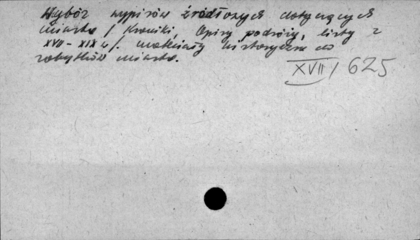 Wybór wypisów źródłowych dotyczących
miasta / Kroniki, Opisy podróży, listy z
XVII-XIX w/. materiały historyczne
zabytków miasta.
XVII / 625